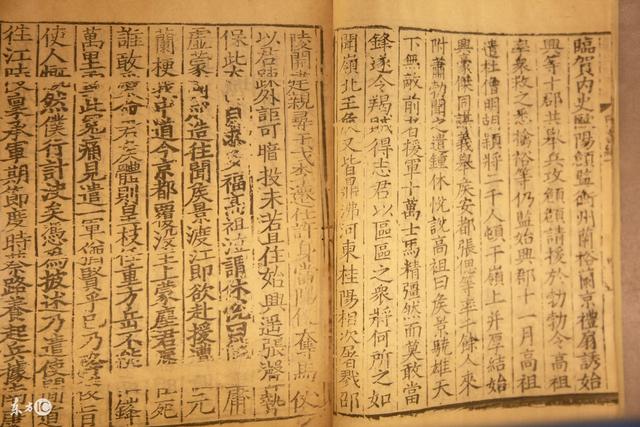 臨賀內史歐陽頠監衡州蘭裕蘭京禮扇誘始
興等十郡共舉兵攻頠頠請援於勃勃令高祖
率衆救之悉擒裕等仍監始興郡十一月高祖
遣杜僧明胡穎將二千人頓于嶺上并厚結始
興豪傑同謀義舉侯安都張偲等率千餘人來
附蕭勃聞之遣鍾休悅說高祖曰侯景驍雄天
下無敵前者援軍十萬士馬精彊然而莫敢當
鋒遂令羯賊得志君以區區之衆將何所之如
聞嶺北王侯又皆鼎沸河東桂陽相次屠戮邵
陵開建親尋干戈李遷仕許身當陽便奪馬仗
以君疎外詎可暗投未若且住始興遙張聲勢
保此太山自求多福高祖泣謂休悅曰庸
虛蒙國成造往聞侯景渡江即欲赴援遭元
蘭梗我中道今京都覆沒主上蒙塵君辱臣死
誰敢愛命君侯體則皇枝任重方岳不能摧鋒
萬里雪此冤痛見遣一軍猶賢乎已乃降後旨
使人慨然僕行計決矣憑爲披述乃遣使間道
往江陵稟承軍期節度時蔡路養起兵據南
东方IC